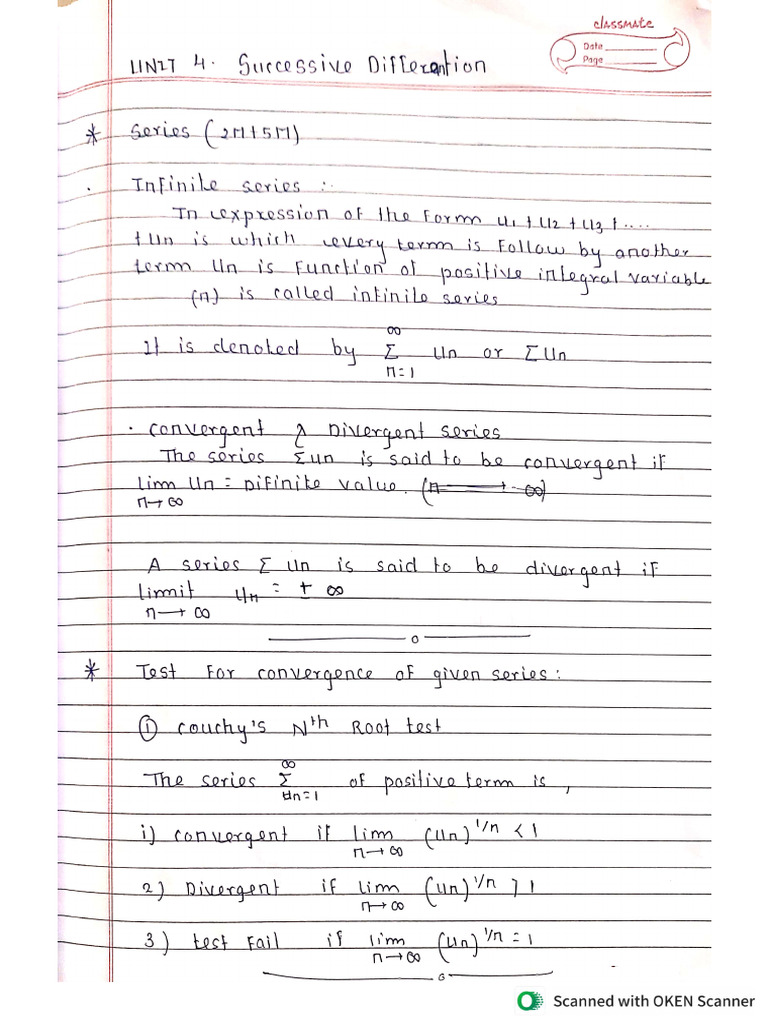 classmate
Date
Page
UNIT 4. Successive Differention
* Series (2M+5M)
. Infinite series :.
In expression of the form u1 + u2 + u3 + ....
+ un is which every term is follow by another
term un is function of positive integral variable
(n) is called infinite series
It is denoted by ∞ Σ n=1 un or Σun
. convergent & Divergent series
The series Σun is said to be convergent if
lim n→∞ un = Difinite value.
A series Σ un is said to be divergent if
limit n→∞ un = ± ∞
* Test for convergence of given series :
① couchy's Nth Root test
The series ∞ Σ n=1 of positive term is,
i) convergent if lim n→∞ (un)^1/n < 1
2) Divergent if lim n→∞ (un)^1/n > 1
3) test fail if lim n→∞ (un)^1/n = 1
Scanned with OKEN Scanner